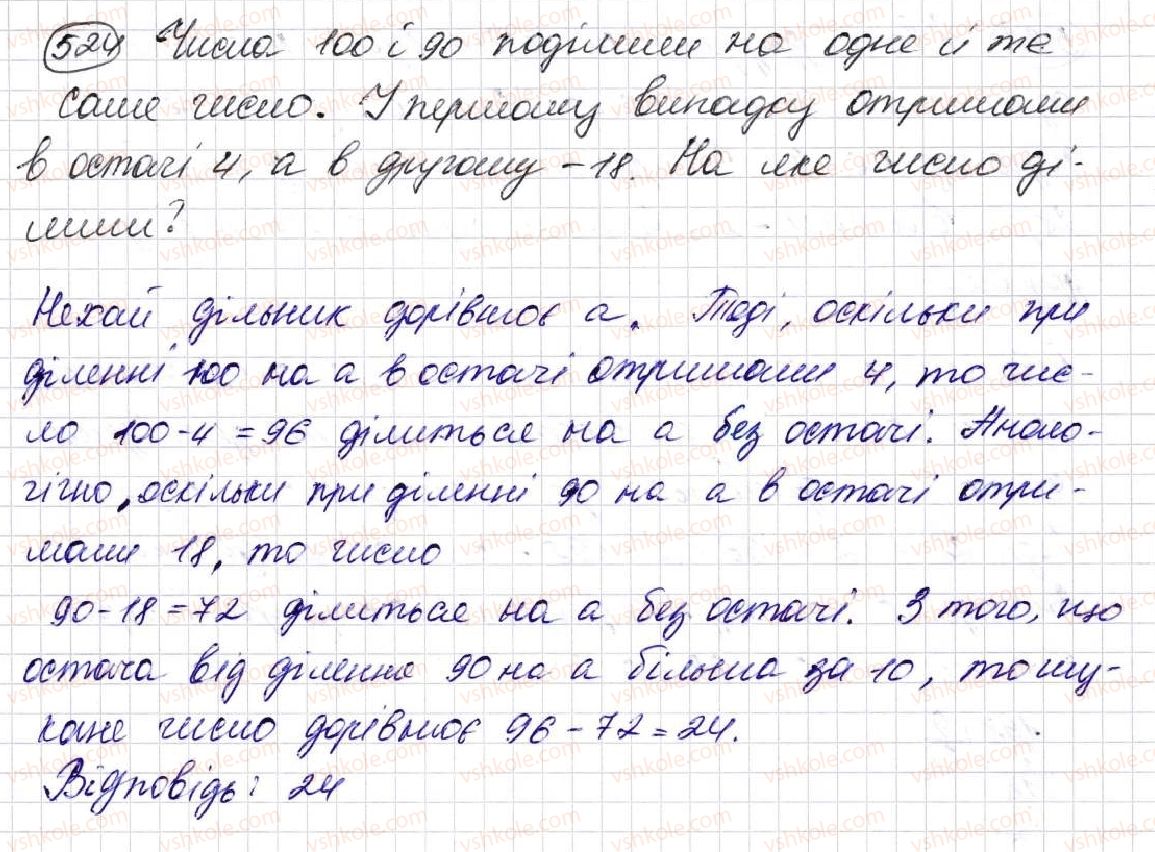 524 Числа 100 і 90 поділили на одне й те
саме число. У першому випадку отримали
в остачі 4, а в другому - 18. На яке число ді-
лили?
Нехай дільник дорівнює а. Тоді, оскільки при
діленні 100 на а в остачі отримали 4, то чис-
ло 100-4=96 ділиться на а без остачі. Анало-
гічно, оскільки при діленні 90 на а в остачі отри-
мали 18, то число
90-18=72 ділиться на а без остачі. З того, що
остача від ділення 90 на а більша за 10, то шу-
кане число дорівнює 96-72=24.
Відповідь: 24